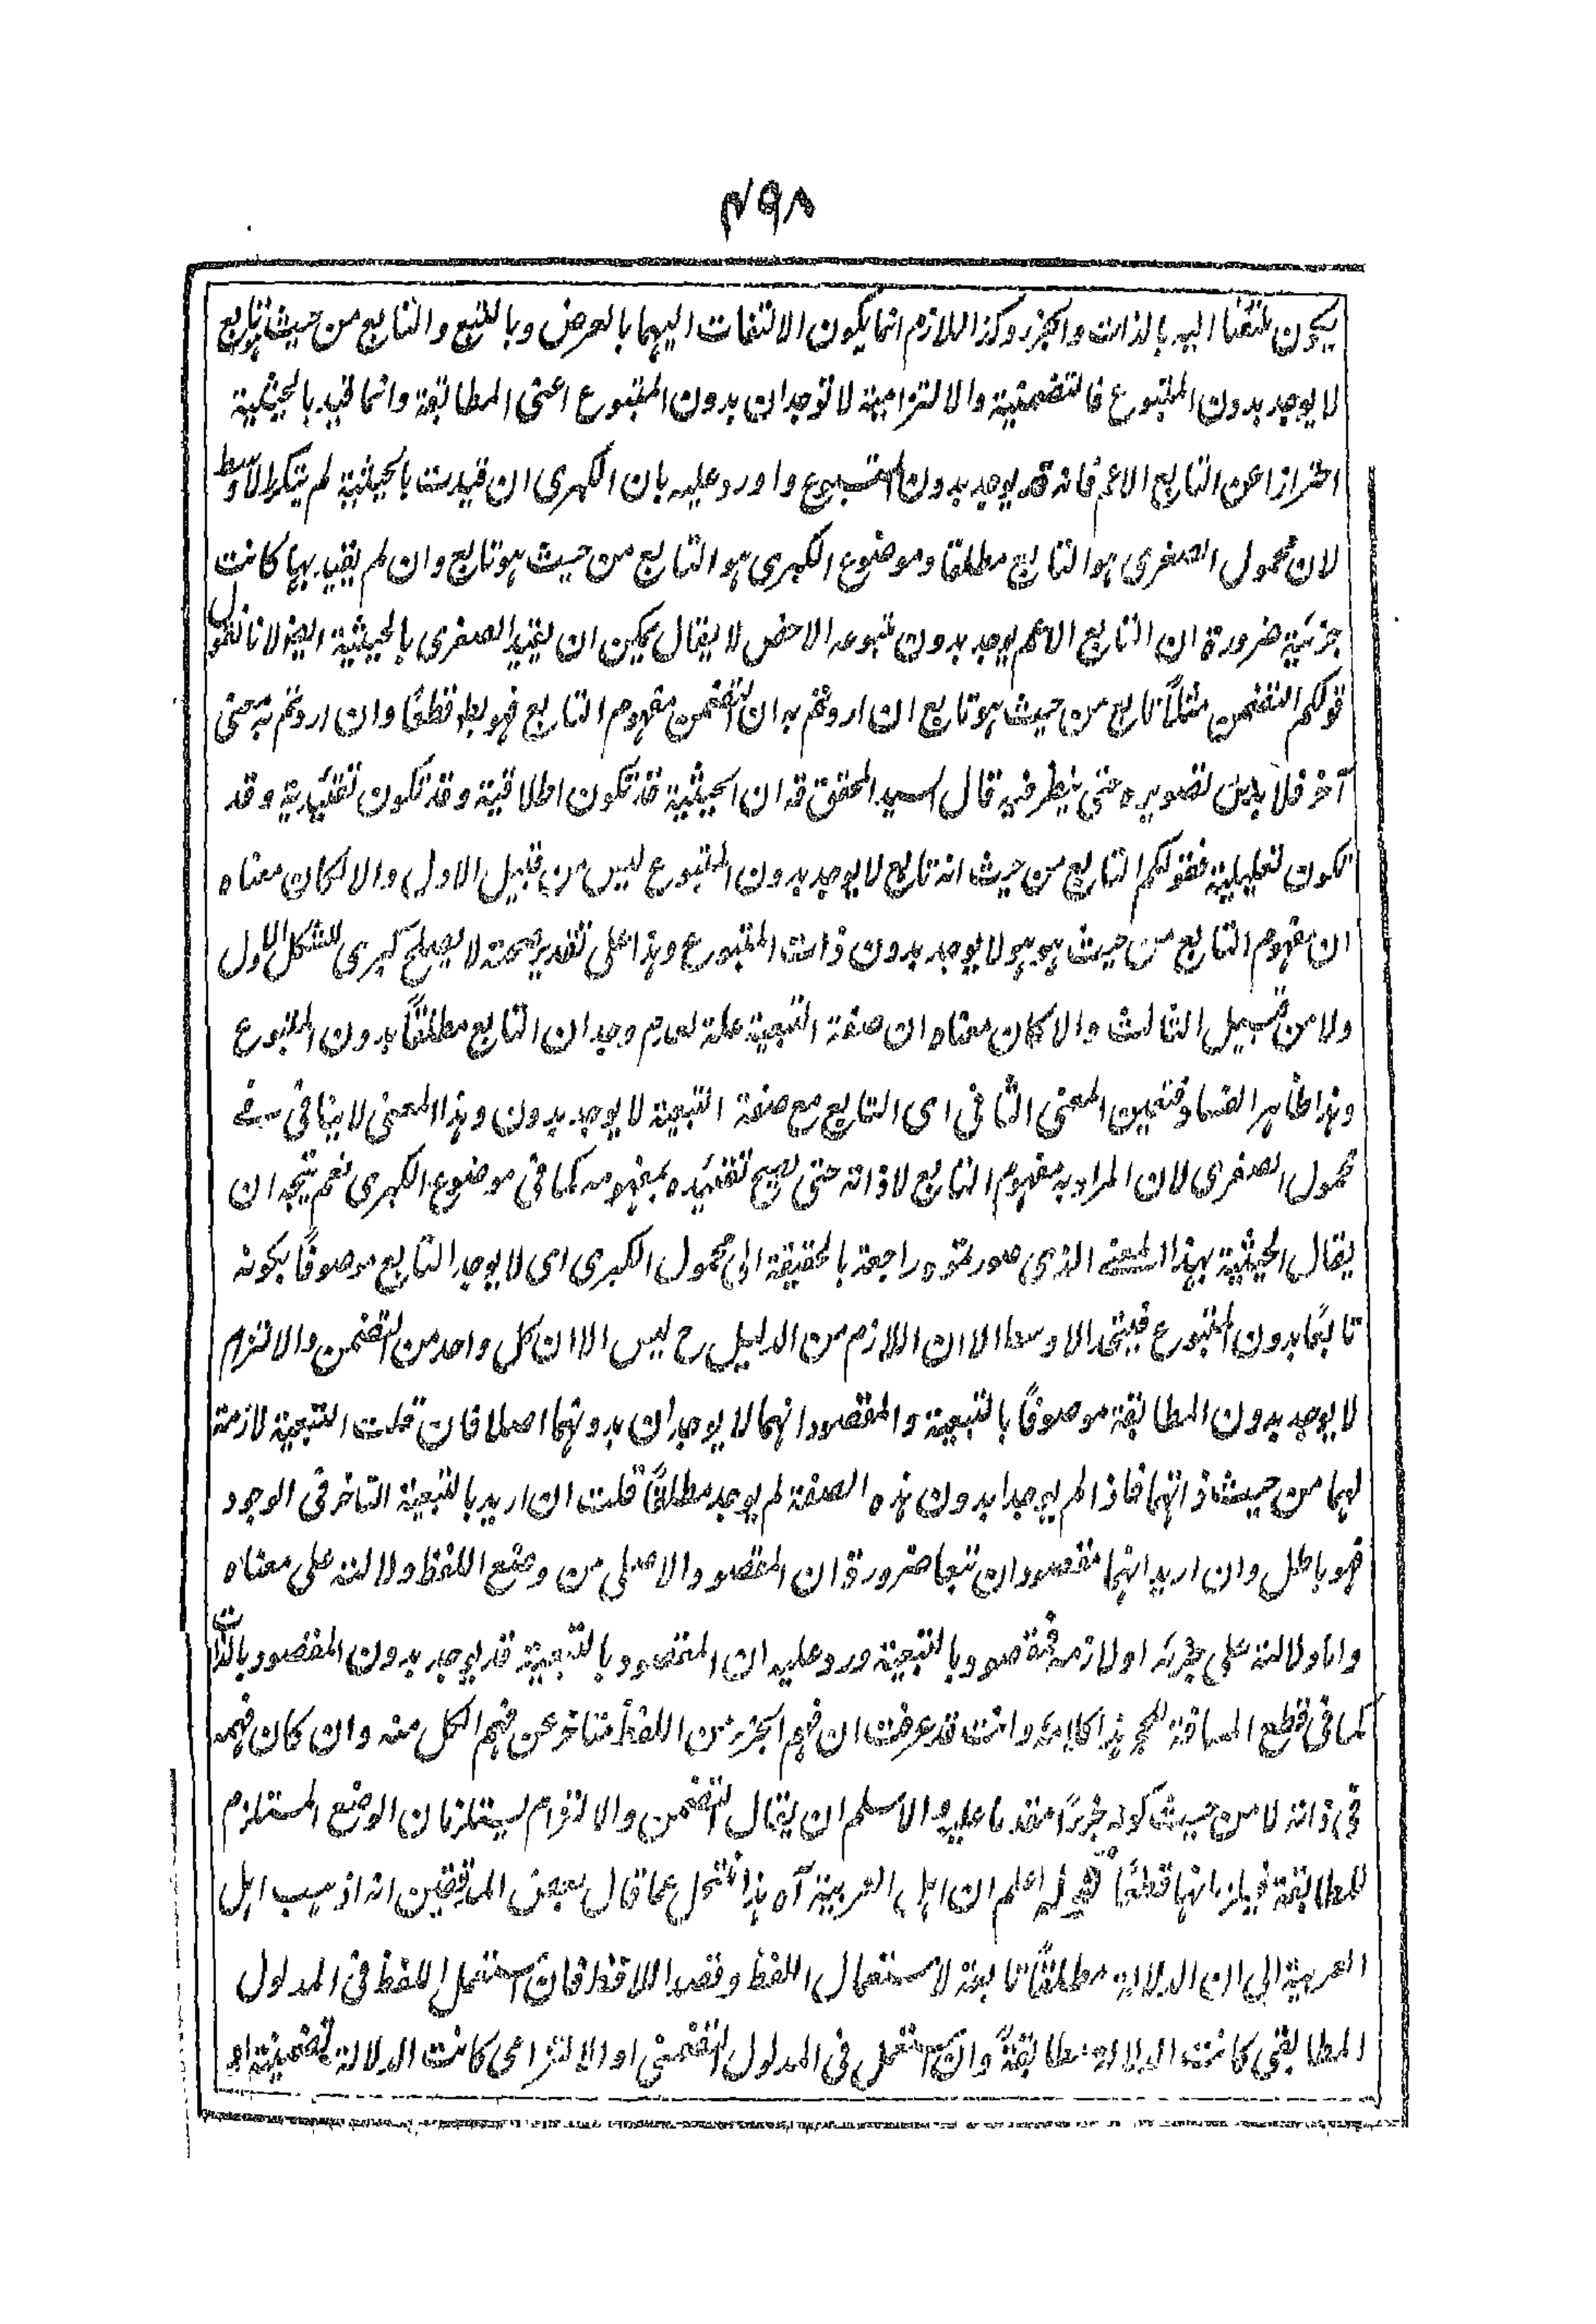 ۴۹۸
يكون ملتفتا اليه بالذات والجزء وكذا اللازم انما يكون الالتفات اليهما بالعرض وبالتبع والتابع من حيث هو تابع
لا يوجد بدون المتبوع فالتضمنية والالتزامية لا توجدان بدون المتبوع اعنى المطابقة وانما قيد بالحيثية
احترازا عن التابع الاعم فانه قد يوجد بدون المتبوع واورد عليه بان الكبرى ان قيدت بالحيثية لم يتكرر الاوسط
لان محمول الصغرى هو التابع مطلقا وموضوع الكبرى هو التابع من حيث هو تابع وان لم يقيد بها كانت
جزئية ضرورة ان التابع الاعم يوجد بدون متبوعه الاخص لا يقال يمكن ان يقيد الصغرى بالحيثية ايضا لانا نقول
قولكم التضمن مثلاً تابع من حيث هو تابع ان اردتم به ان التضمن مفهوم التابع فهو بط قطعًا وان اردتم به معنى
آخر فلا بد من تصويره حتى ينظر فيه قال السيد المحقق قه ان الحيثية قد تكون اطلاقية وقد تكون تقئيدية وقد
تكون تعليلية فقولكم التابع من حيث انه تابع لا يوجد بدون المتبوع ليس من قبيل الاول والا لكان معناه
ان مفهوم التابع من حيث هو هو لا يوجد بدون ذات المتبوع وهذا على تقدير صحته لا يصلح كبرى للشكل الاول
ولا من قبيل الثالث والا كان معناه ان صفة التبعية علة لعدم وجدان التابع مطلقًا بدون المتبوع
وهذا ظاهر الفساد فتعين المعنى الثانى اى التابع مع صفة التبعية لا يوجد بدون وهذا المعنى لا ينافى فے
محمول الصغرى لان المراد به مفهوم التابع لا ذاته حتى يصح تقئيده بمفهومه كما فى موضوع الكبرى نعم يتجه ان
يقال الحيثية بهذا المعنے الذى صورتموه راجعة بالحقيقة الى محمول الكبرى اى لا يوجد التابع موصوفًا بكونه
تابعًا بدون المتبوع فيتحد الاوسط الا ان اللازم من الدليل ح ليس الا ان كل واحد من التضمن والالتزام
لا يوجد بدون المطابقة موصوفًا بالتبعية والمقصود انهما لا يوجدان بدونها اصلا فان قلت التبعية لازمة
لهما من حيث ذاتهما فاذا لم يوجدا بدون هذه الصفة لم يوجد مطلقًا قلت ان اريد بالتبعية التاخر فى الوجود
فهو باطل وان اريد انهما مقصودان تبعا ضرورة ان المقصود الاصلى من وضع اللفظ دلالته على معناه
واما دلالته على جزئه او لازمه فمقصود بالتبعية ورد عليه ان المقصود بالتبعية قد يوجد بدون المقصود بالذات
كما فى قطع المسافة للحج هذا كلامه وانت قد عرفت ان فهم الجزء من اللفظ متاخر عن فهم الكل منه وان كان فهمه
فى ذاته لا من حيث كونه جزءًا مقدما عليه والاسلم ان يقال التضمن والالتزام يستلزمان الوضع المستلزم
للمطابقة فيلزمانها قطعًا قوله اعلم ان اهل العربية آه هذا منتحل عما قال بعض المدققين انه اذهب اهل
العربية الى ان الدلالة مطلقًا تابعة لاستعمال اللفظ وقصد اللافظ فان استعمل اللفظ فى المدلول
المطابقى كانت الدلالة مطابقةً وان استعمل فى المدلول التضمنى او الالتزامى كانت الدلالة تضمنية او